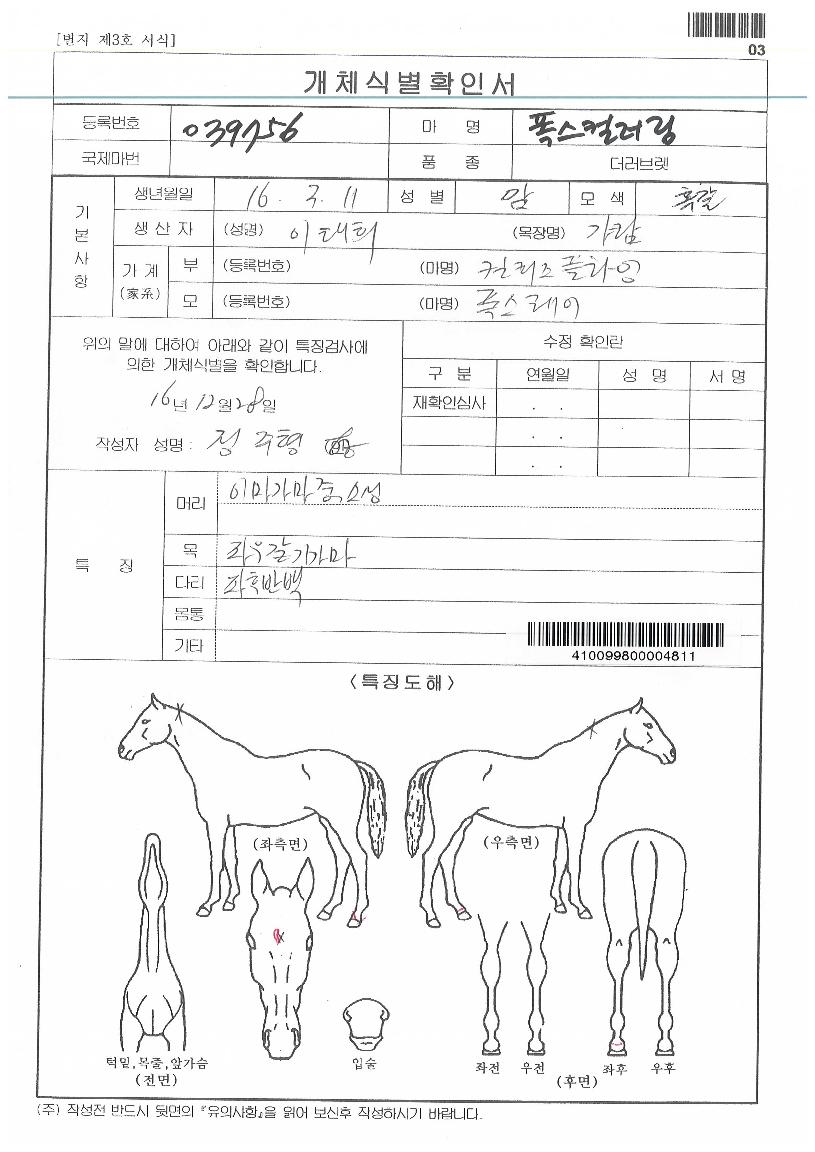 [번지 제3호 서식]
03
개체식별확인서
등록번호 039756 마 명 폭스컬러링
국제마번 품 종 더러브렛
기본사항
생년월일 16. 3. 11 성 별 암 모 색 흑갈
생 산 자 (성명) 이태희 (목장명) 가람
가 계 (家系) 부 (등록번호) (마명) 컬러즈플라잉
모 (등록번호) (마명) 폭스레이
위의 말에 대하여 아래와 같이 특징검사에
의한 개체식별을 확인합니다.
16년 12월 28일
작성자 성명 : 정주형
수정 확인란
구 분 연월일 성 명 서 명
재확인심사 . .
. .
. .
특 징
머리 이마가마중,소성
목 좌우갈기가마
다리 좌후반백
몸통
기타
410099800004811
<특징도해>
(좌측면) (우측면)
턱밑,목줄,앞가슴
(전면)
입술
좌전 우전 좌후 우후
(후면)
(주) 작성전 반드시 뒷면의 『유의사항』을 읽어 보신후 작성하시기 바랍니다.